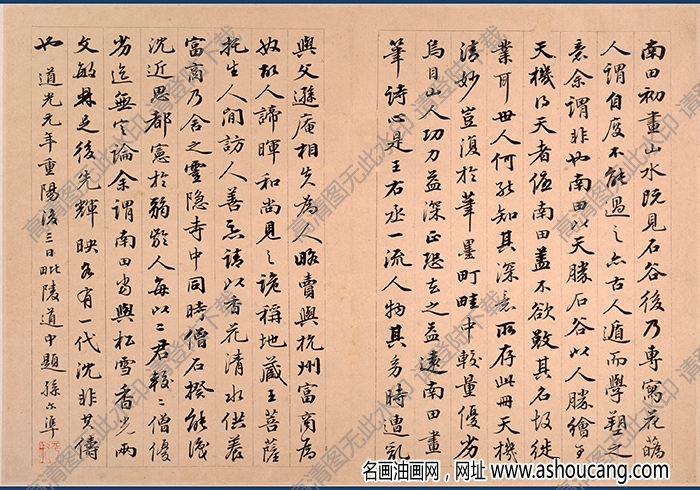 南田初畫山水既見石谷後乃專寫花蕊
人謂自度不能過之亦古人遁而學塑之
意余謂非也南田以天勝石谷以人勝繪主
天機得天者優南田盖不欲敵其名故徙
業耳世人何能知其深意所存此冊天機
清妙豈復於筆墨町畦中較量優劣
烏目山人功力益深正恐去之益遠南田畫
筆詩心是王右丞一流人物其多時遭亂
與父遜庵相失為人略賣與杭州富商為
奴故人諦暉和尚見之詭稱地藏王菩薩
托生人間訪人善惡請以香花清水供養
富商乃舍之靈隱寺中同時僧石揆能識
沈近思都憲於弱齡人每以二君較二僧優
劣迄無定論余謂南田當與松雪香光兩
文敏林立後先輝映各有一代沈非其儔
也 道光元年重陽後三日毗陵道中題 孫尔準
高清图无此水印 请登陆下载
名画油画网，网址 www.ashoucang.com